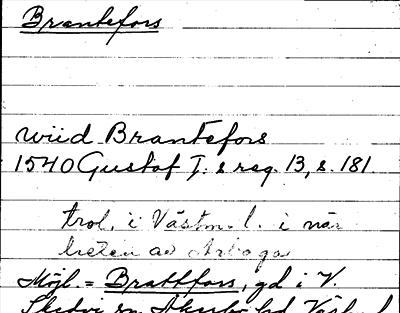 Brantefors
wiid Brantefors
1540 Gustaf I:s reg. 13, s. 181.
trol. i Västm. l. i när
heten av Arboga
Möjl. = Brattfors, gd i V.
Skedvi sn, Åkerbo hd, Västm. l